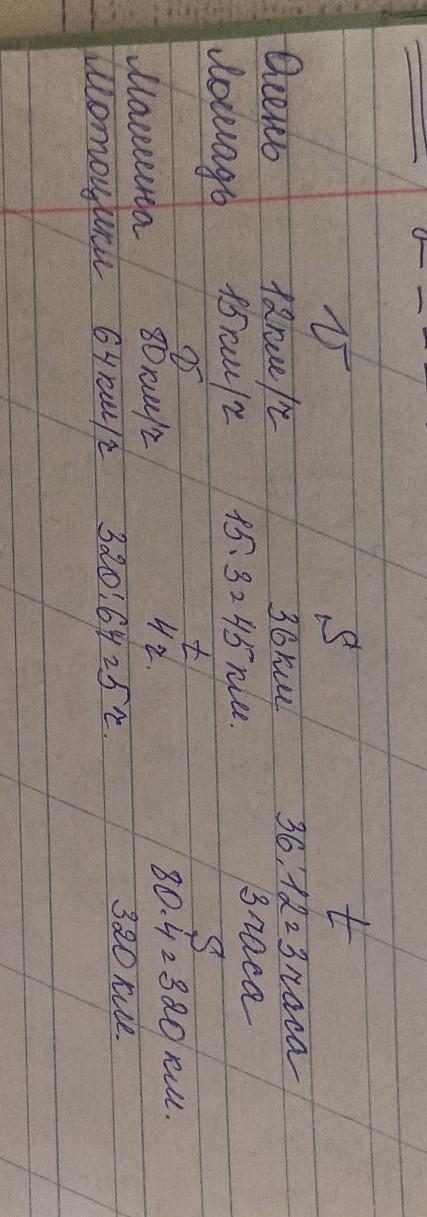 V S t
Олень 12км/ч 36км 36:12=3часа
Лошадь 15км/ч 15·3=45км. 3часа
V t S
Машина 80км/ч 4ч. 80·4=320км.
Мотоцикл 64км/ч 320:64=5ч. 320км.